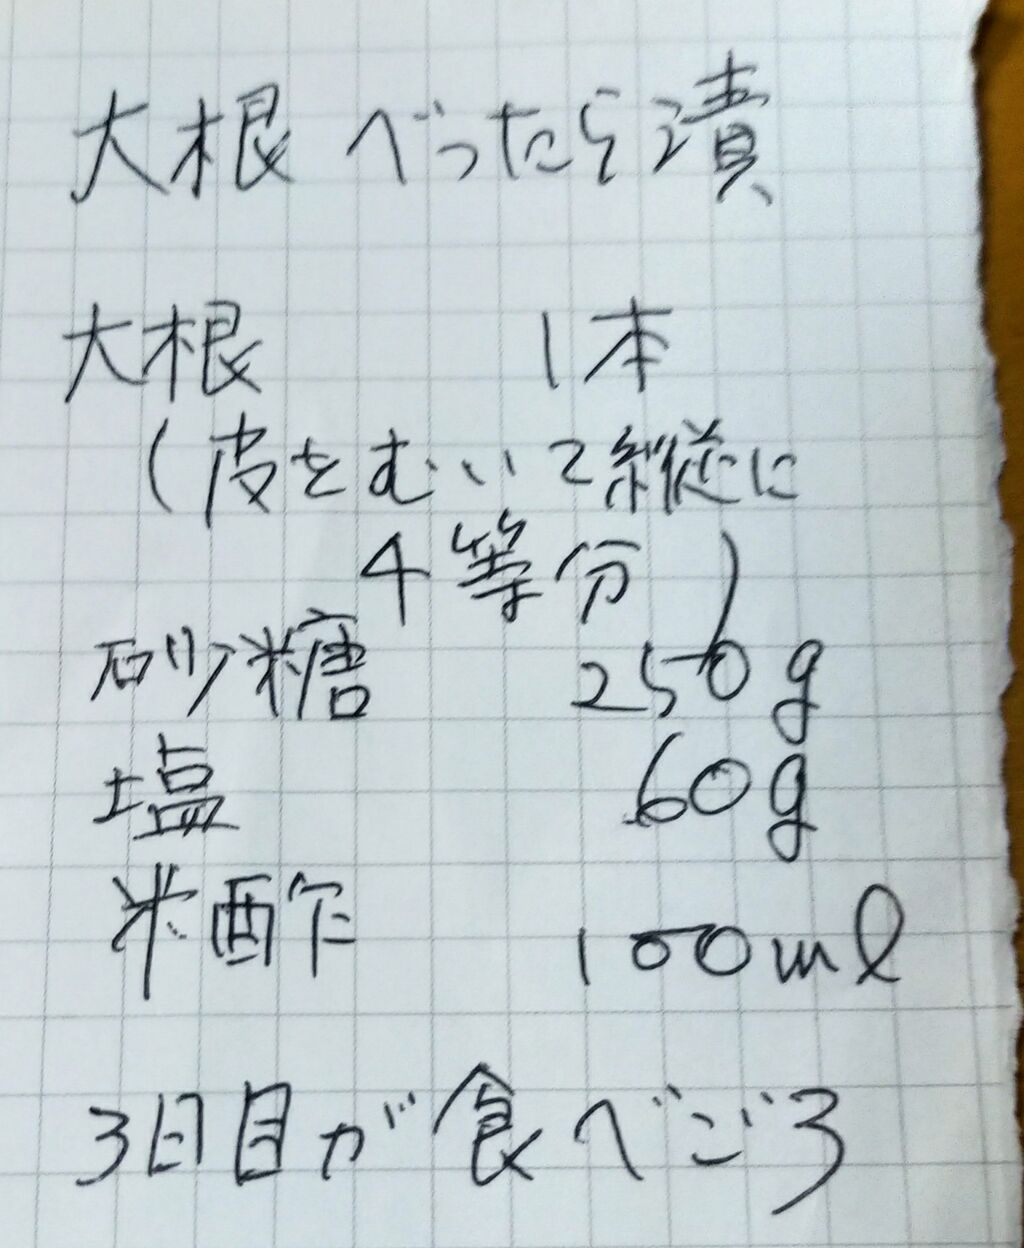 大根べったら漬
大根 1本
(皮をむいて縦に
4等分)
砂糖 250g
塩 60g
米酢 100ml
3日目が食べごろ